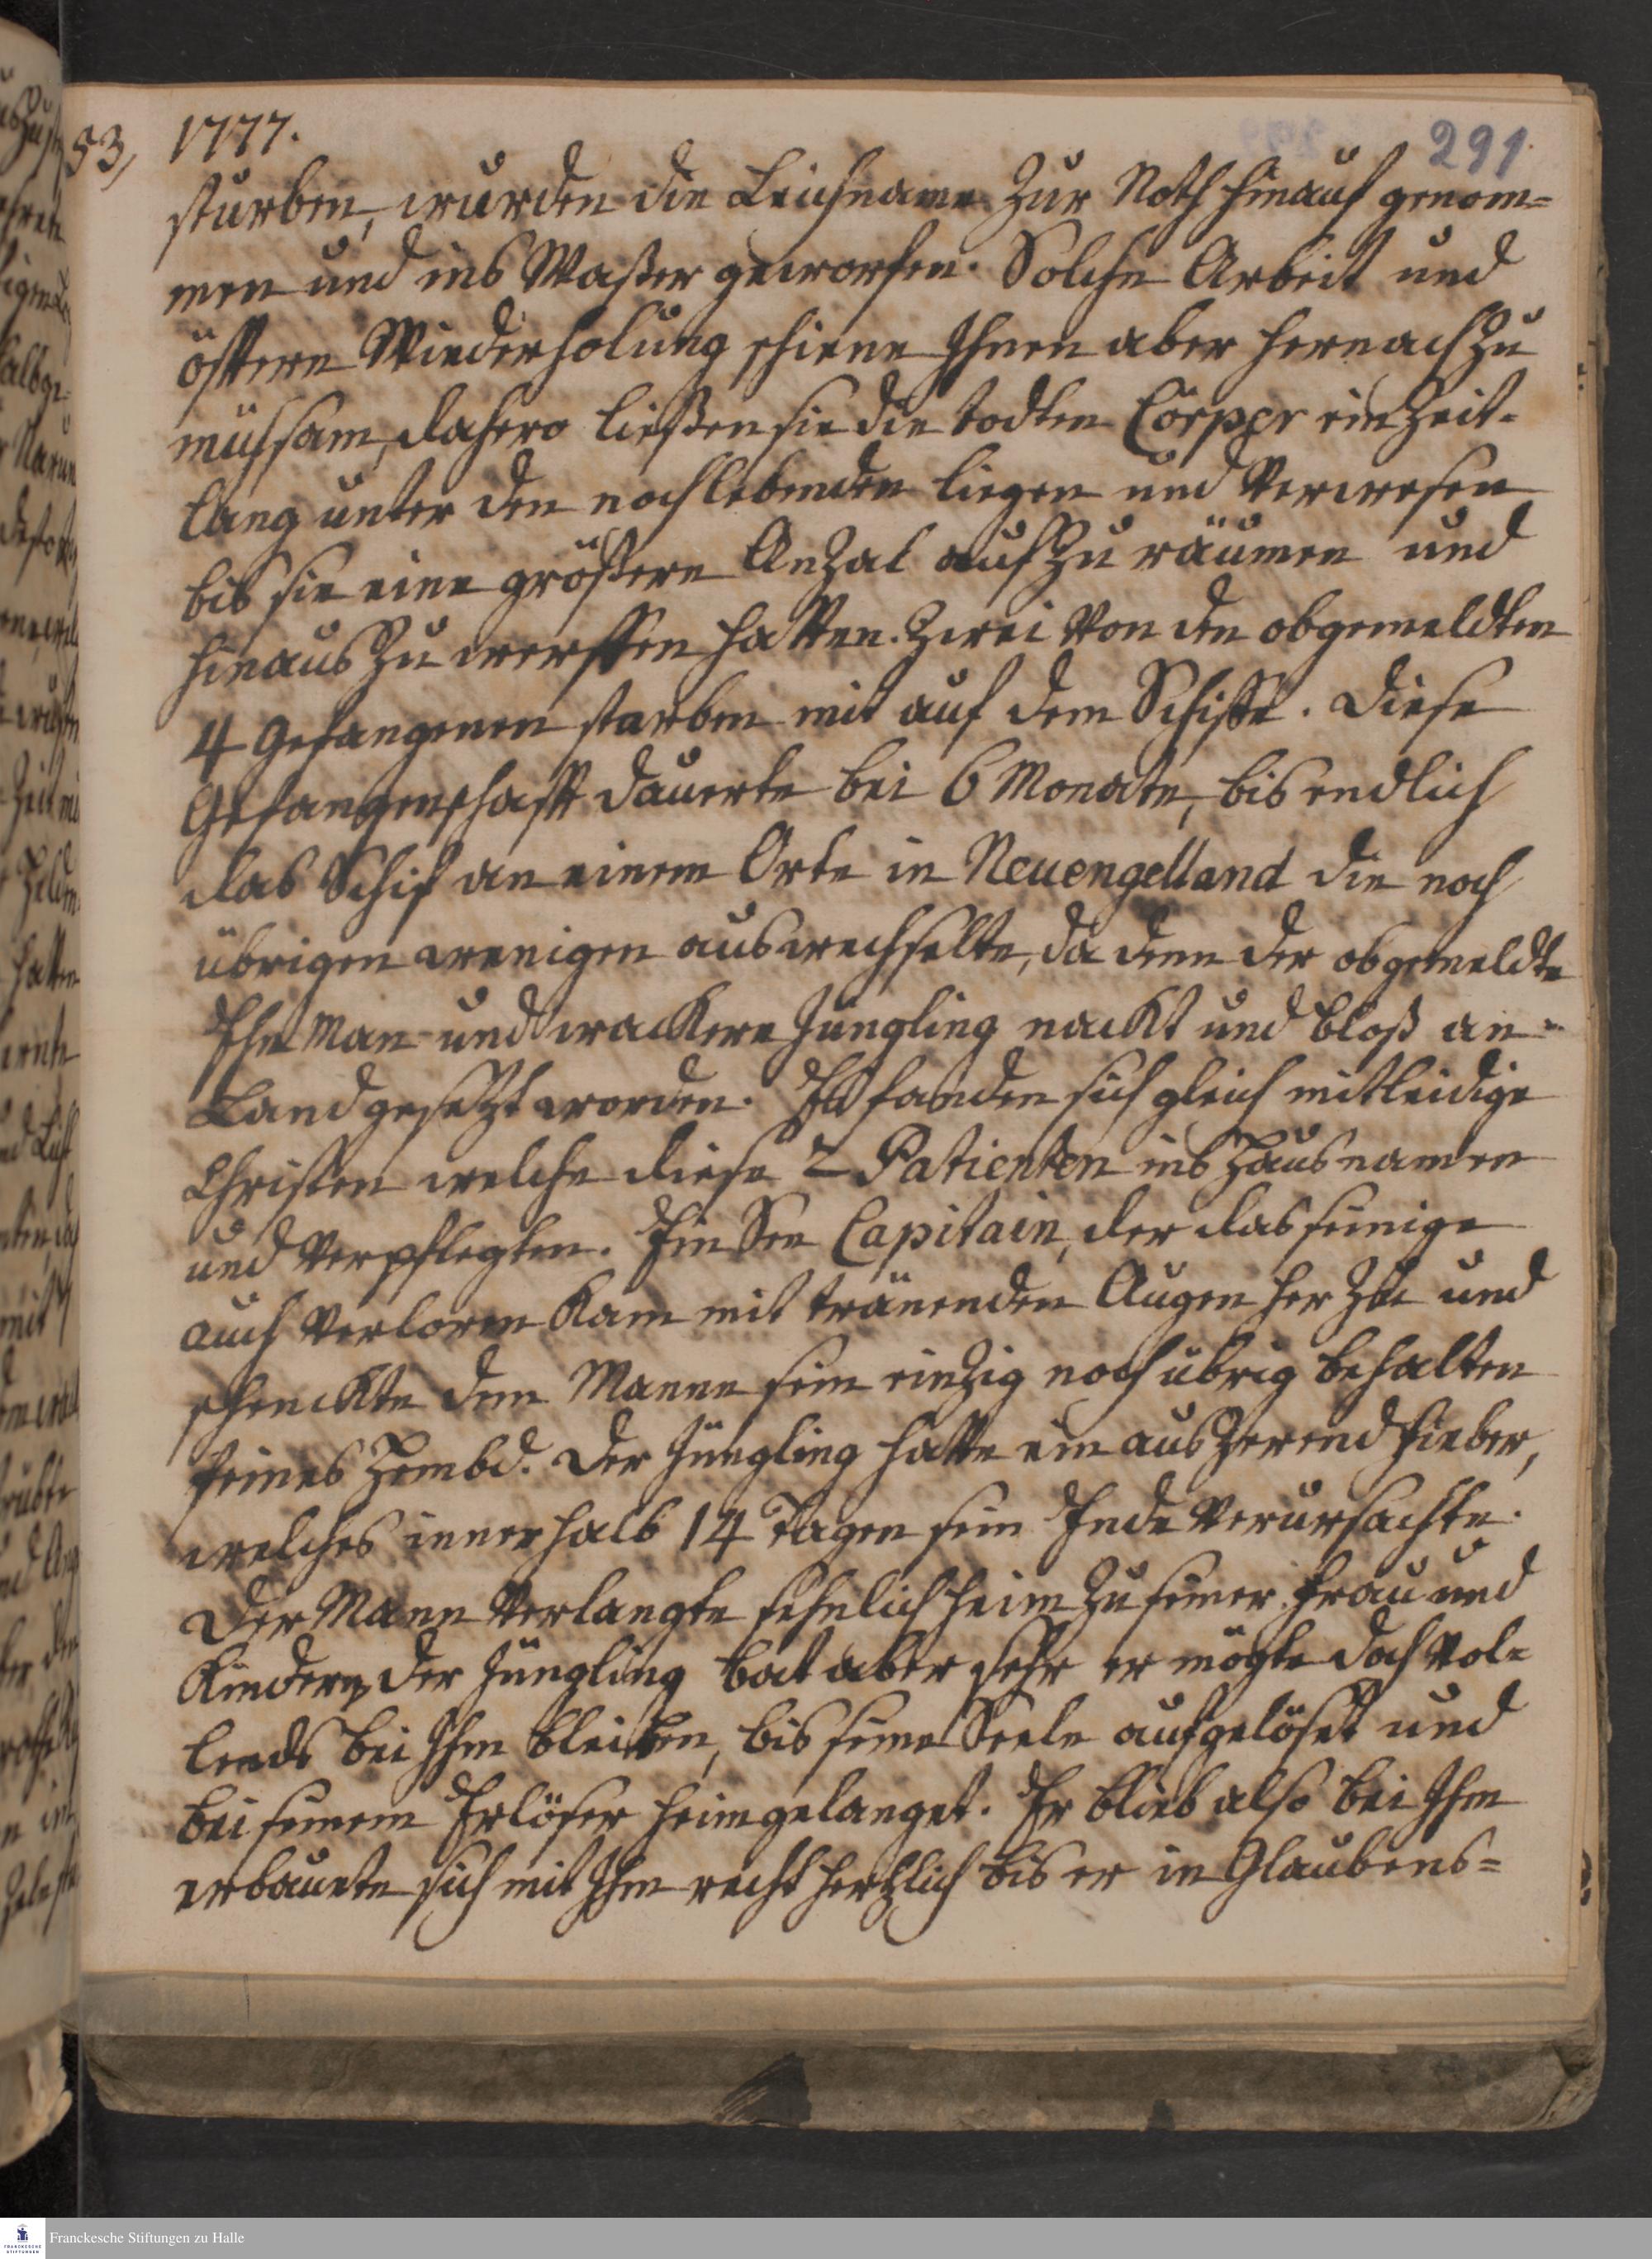 53, 1777. 291
sturben, wurden die Leichname zur Noth hinauf genom=
men und ins Waßer geworfen. Solche Arbeit und
öfftere Wiederholung schiene Ihnen aber hernach zu
mühsam, dahero ließen sie die todten Cörper ein Zeit=
lang unter den noch lebenden liegen und verwesen
bis sie eine größere Anzal aufzuräumen und
hinaus zu werffen hatten. Zwei von den obgemeldten
4 Gefangenen starben mit auf dem Schiffe. Diese
Gefangenschafft dauerte bei 6 Monate, bis endlich
das Schif an einem Orte in Neuengelland die noch
übrigen wenigen auswechselte, da denn der obgemeldte
Ehe Man und wackere Jüngling nackt und bloß an=
Land gesetzt worden. Es fanden sich gleich mitleidige
Christen welche diese 2 Patienten ins Haus namen
und verpflegten. Ein See Capitain, der das seinige
auch verloren kam mit tränenden Augen herzu und
schenckte dem Manne sein einzig noch übrig behalten
feines Hembd. Der Jüngling hatte ein auszerend Fieber,
welches innerhalb 14 Tagen sein Ende verursachte.
Der Mann verlangte sehnlich heim zu seiner Frau und
Kindern, der Jüngling bat aber sehr er mögte doch vol=
lends bei Ihm bleiben, bis seine Seele aufgelöset und
bei seinem Erlöser heimgelanget. Er blieb also bei Ihm
erbauete sich mit Ihm recht hertzlich bis er in Glaubens=
Franckesche Stiftungen zu Halle